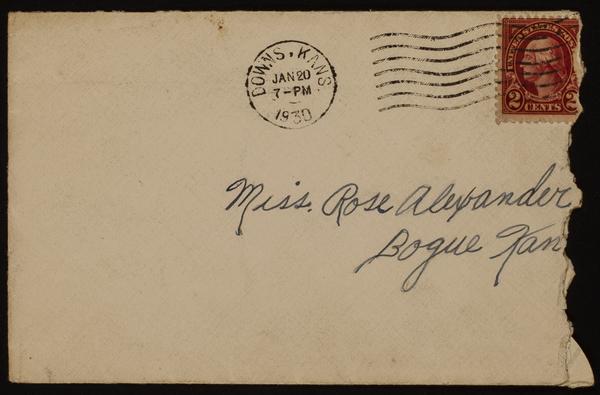 DOWNS, KANS.
JAN 20
7-PM
1930
UNITED STATES POST
2 CENTS 2
Miss. Rose Alexander
Bogue Kan